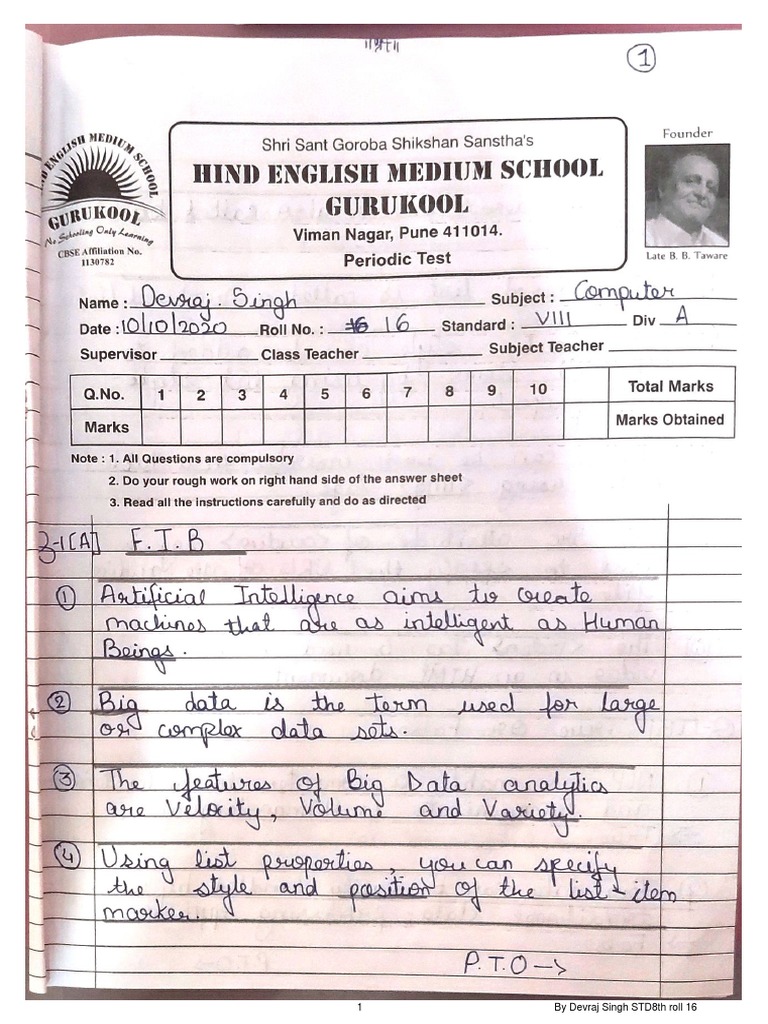 ॥श्री॥
1
HIND ENGLISH MEDIUM SCHOOL
GURUKOOL
No Schooling Only Learning
CBSE Affiliation No.
1130782
Shri Sant Goroba Shikshan Sanstha's
HIND ENGLISH MEDIUM SCHOOL
GURUKOOL
Viman Nagar, Pune 411014.
Periodic Test
Founder
Late B. B. Taware
Name : Devraj. Singh Subject : Computer
Date : 10/10/2020 Roll No. : 16 Standard : VIII Div A
Supervisor Class Teacher Subject Teacher
Q.No. 1 2 3 4 5 6 7 8 9 10 Total Marks
Marks Marks Obtained
Note : 1. All Questions are compulsory
2. Do your rough work on right hand side of the answer sheet
3. Read all the instructions carefully and do as directed
Q-1[A] F.I.B
1 Artificial Intelligence aims to create
machines that are as intelligent as Human
Beings.
2 Big data is the term used for large
or complex data sets.
3 The features of Big Data analytics
are Velocity, Volume and Variety.
4 Using list properties, you can specify
the style and position of the list-item
marker.
P.T.O →
1 By Devraj Singh STD8th roll 16